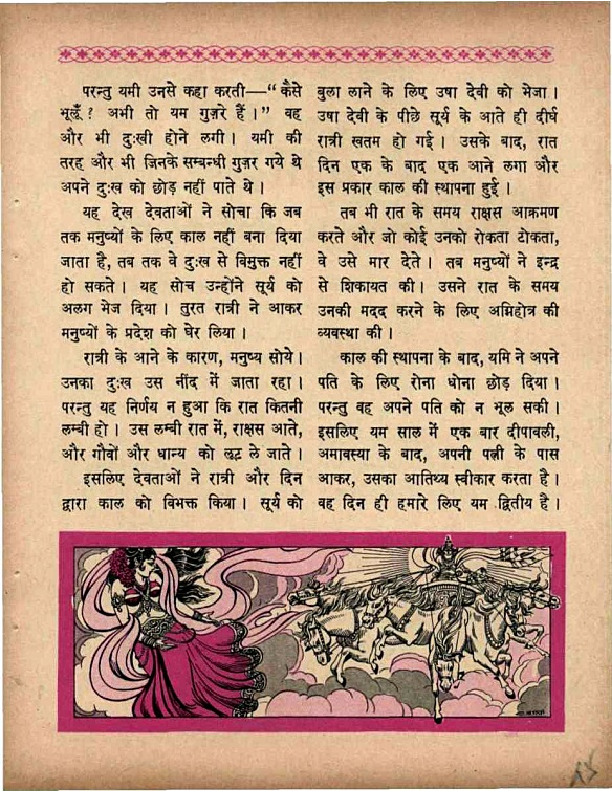 परन्तु यमी उनसे कहा करती—“कैसे
भूलूँ ? अभी तो यम गुज़रे हैं ।” वह
और भी दुःखी होने लगी । यमी की
तरह और भी जिनके सम्बन्धी गुज़र गये थे
अपने दुःख को छोड़ नहीं पाते थे ।
यह देख देवताओं ने सोचा कि जब
तक मनुष्यों के लिए काल नहीं बना दिया
जाता है, तब तक वे दुःख से विमुक्त नहीं
हो सकते । यह सोच उन्होंने सूर्य को
अलग भेज दिया । तुरत रात्री ने आकर
मनुष्यों के प्रदेश को घेर लिया ।
रात्री के आने के कारण, मनुष्य सोये ।
उनका दुःख उस नींद में जाता रहा ।
परन्तु यह निर्णय न हुआ कि रात कितनी
लम्बी हो । उस लम्बी रात में, राक्षस आते,
और गौवों और धान्य को लूट ले जाते ।
इसलिए देवताओं ने रात्री और दिन
द्वारा काल को विभक्त किया । सूर्य को
बुला लाने के लिए उषा देवी को भेजा ।
उषा देवी के पीछे सूर्य के आते ही दीर्घ
रात्री खतम हो गई । उसके बाद, रात
दिन एक के बाद एक आने लगा और
इस प्रकार काल की स्थापना हुई ।
तब भी रात के समय राक्षस आक्रमण
करते और जो कोई उनको रोकता टोकता,
वे उसे मार देते । तब मनुष्यों ने इन्द्र
से शिकायत की । उसने रात के समय
उनकी मदद करने के लिए अग्निहोत्र की
व्यवस्था की ।
काल की स्थापना के बाद, यमि ने अपने
पति के लिए रोना धोना छोड़ दिया ।
परन्तु वह अपने पति को न भूल सकी ।
इसलिए यम साल में एक बार दीपावली,
अमावस्या के बाद, अपनी पत्नी के पास
आकर, उसका आतिथ्य स्वीकार करता है ।
वह दिन ही हमारे लिए यम द्वितीय है ।